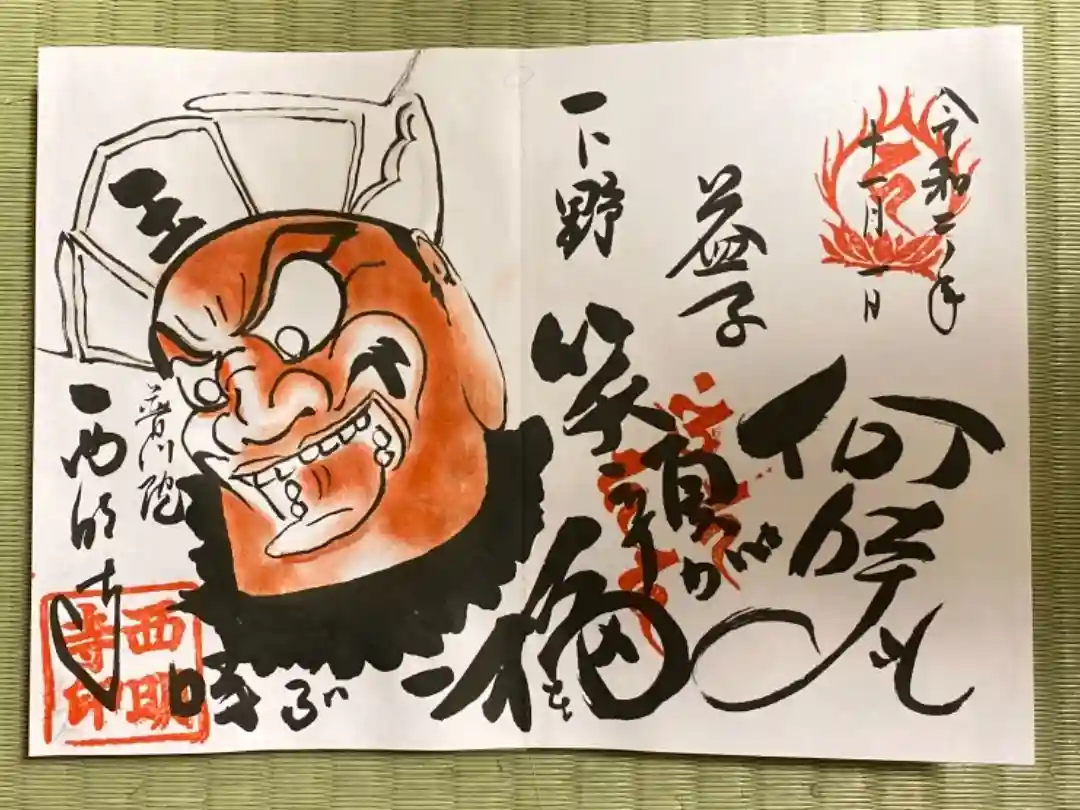 令和二年
十一月一日
益子
下野
何時も
笑顔が
福を
呼ぶ
王
普門院
西明寺
西明
寺印